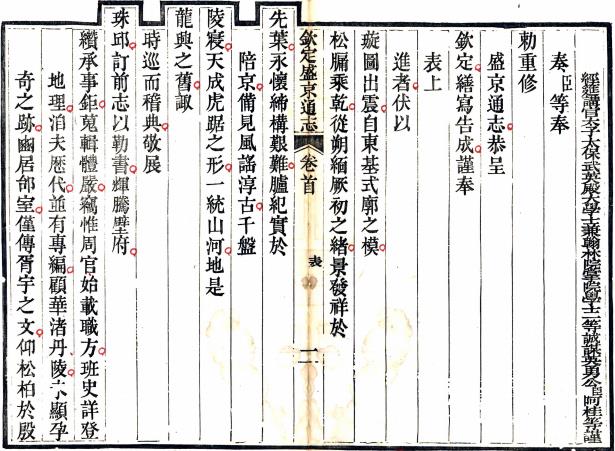 經筵講官太子太保武英殿大學士兼翰林院掌院學士一等誠謀英勇公臣阿桂等謹
奏臣等奉
勅重修
盛京通志恭呈
欽定繕寫告成謹奉
表上
進者伏以
璇圖出震自東基式廓之模
松牖乘乾從朔緬厥初之緒景發祥於
欽定盛京通志 卷首 表 一
先葉永懷締構艱難臚紀實於
陪京備見風謠淳古千盤
陵寢天成虎踞之形一統山河地是
龍興之舊諏
時巡而稽典敬展
珠邱訂前志以勒書輝騰璧府
纘承事鉅蒐輯體嚴竊惟周官始載職方班史詳登
地理洎夫歷代並有專編顧華渚丹陵不顯孕
奇之跡豳居邰室僅傳胥宇之文仰松柏於殷